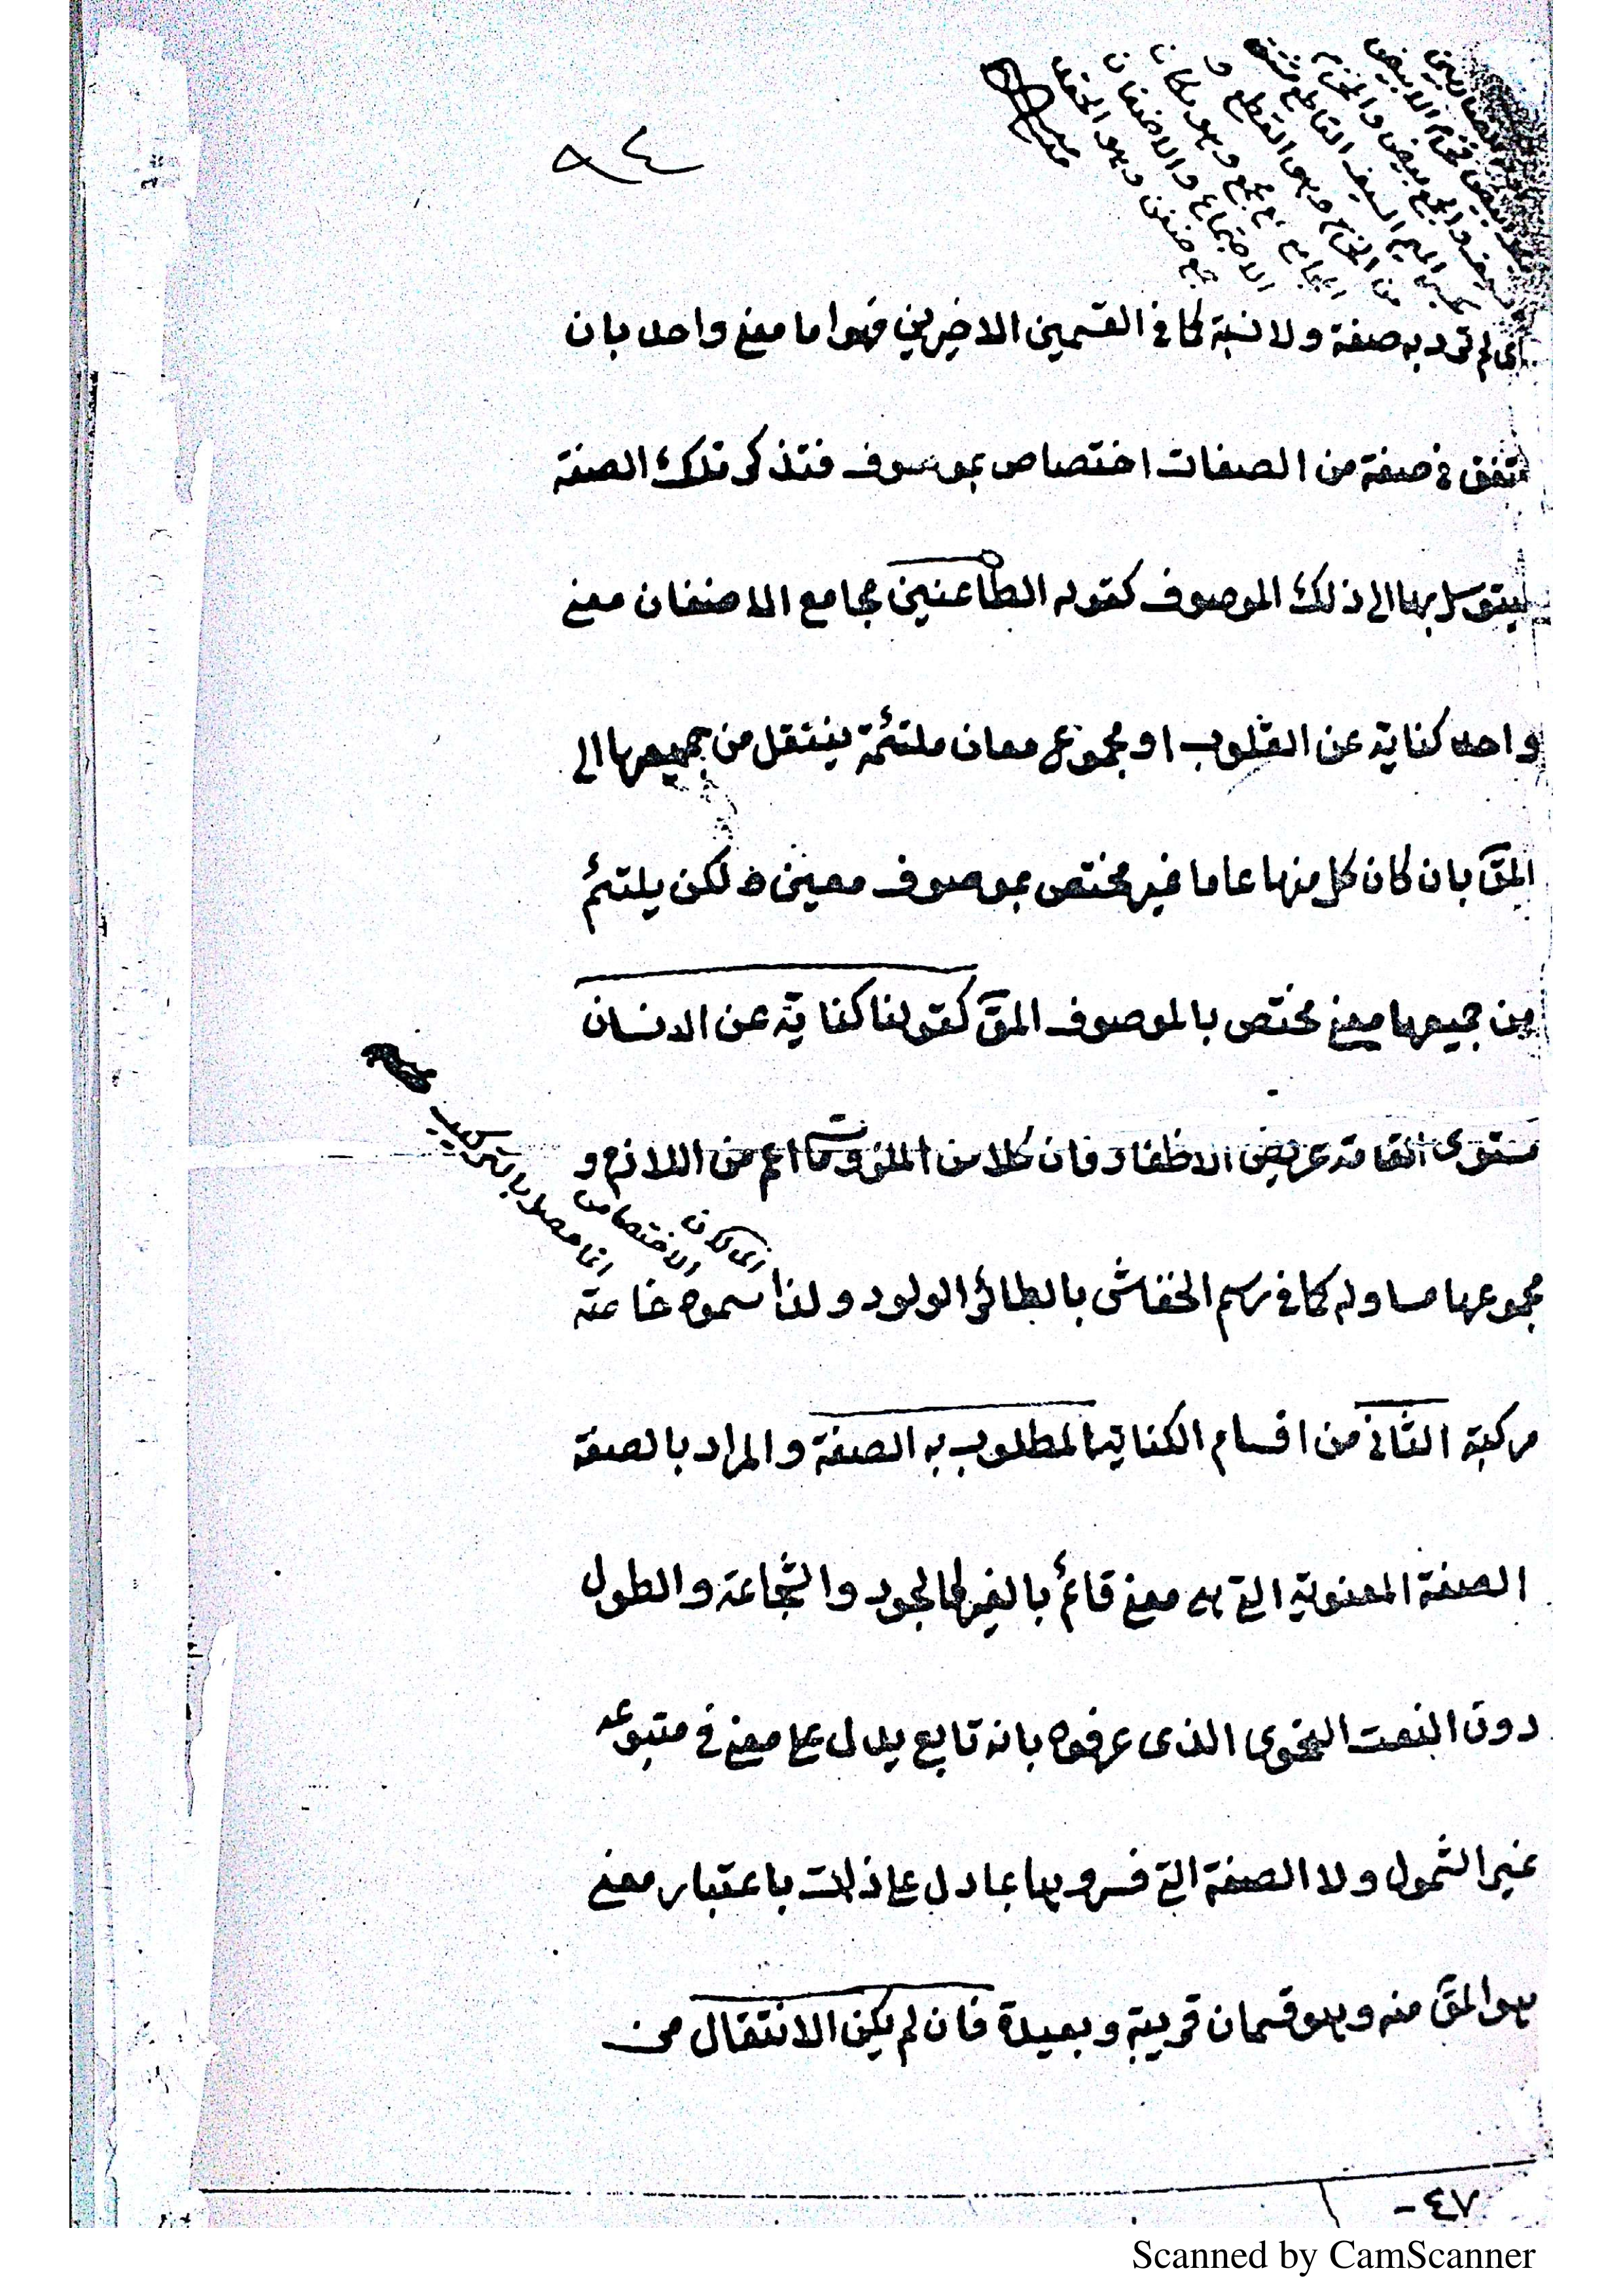 ٩٤
اى لم ترد به صفة ولا نسبة كما فى القسمين الاخيرين فهو اما معنى واحد بان
تتفق فى صفة من الصفات اختصاص بموصوف فتذكر تلك الصفة
ليتوسل بها الى ذلك الموصوف كقوله الطاعنين مجامع الاضغان معنى
واحد كناية عن القلوب او مجموع معان ملتئمة ينتقل من جميعها الى
المق بان كان كل منها عاما غير مختص بموصوف معين لكن يلتئم
من جميعها معنى مختص بالموصوف المق كقولنا كناية عن الانسان
مستوى القامة عريض الاظفار فان كلا من الملزومات اعم من اللازم و
اى لان
الاختصاص
انما حصل بالتركيب
مجموعها مساو له كما فى رسم الخفاش بالطائر الولود ولذا سموه خاصة
مركبة الثانى من اقسام الكناية المطلوب به الصفة والمراد بالصفة
الصفة المعنوية التى هى معنى قائم بالغير كالجود والشجاعة والطول
دون النعت النحوى الذى عرفوه بانه تابع يدل على معنى فى متبوعه
غير الشمول ولا الصفة التى فسروها بما دل على ذات باعتبار معنى
هو المق منه وهو قسمان قريبة وبعيدة فان لم يكن الانتقال من
٤٧-
Scanned by CamScanner